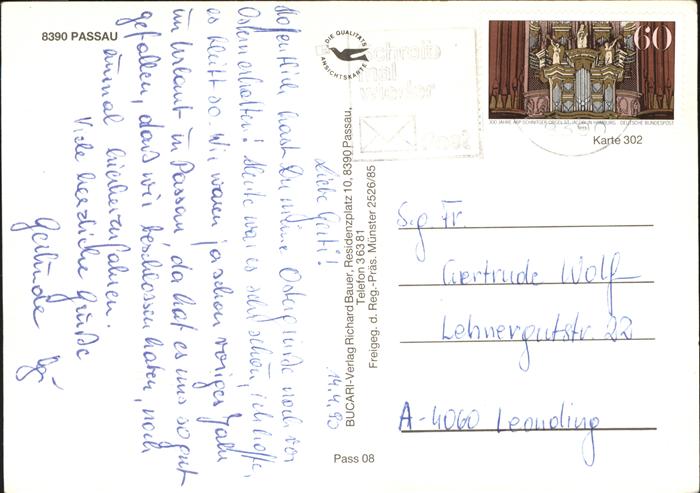 8390 PASSAU
DIE QUALITÄTS
ANSICHTSKARTE
Liebe Gerti!
14.4.90
Hoffentlich hast Du meine Ostergrüße noch vor
Ostern erhalten! Heute war es sehr schön, ich hoffe,
es bleibt so. Wir waren ja schon voriges Jahr
im Urlaub in Passau, da hat es uns so gut
gefallen, daß wir beschlossen haben, noch
einmal hierherzufahren.
Viele herzliche Grüße
Gerlinde
BUCARI-Verlag Richard Bauer, Residenzplatz 10, 8390 Passau,
Telefon 3 63 81
Freigeg. d. Reg.-Präs. Münster 2526/85
Pass 08
schreib
mal
wieder
Post
60
300 JAHRE ARP SCHNITGER-ORGEL ST. JACOBI IN HAMBURG
DEUTSCHE BUNDESPOST
Karte 302
Sg. Fr.
Gertrude Wolf
Lehnergutstr. 22
A-4060 Leonding